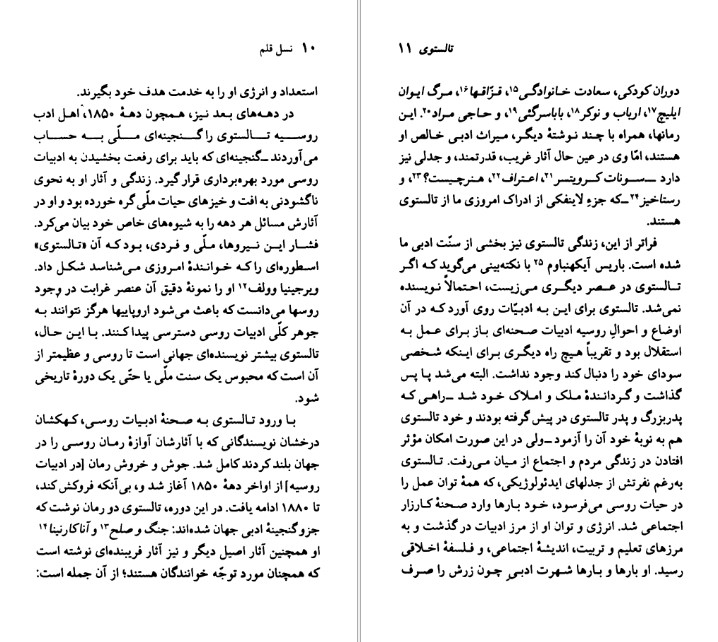 ۱۰ نسل قلم
استعداد و انرژی او را به خدمت هدف خود بگیرند.
در دهه‌های بعد نیز، همچون دههٔ ۱۸۵۰، اهل ادب
روسیه تالستوی را گنجینه‌ای ملّی به حساب
می‌آوردند ـ گنجینه‌ای که باید برای رفعت بخشیدن به ادبیات
روسی مورد بهره‌برداری قرار گیرد. زندگی و آثار او به نحوی
ناگشودنی به افت و خیزهای حیات ملّی گره خورده بود و او در
آثارش مسائل هر دهه را به شیوه‌های خاص خود بیان می‌کرد.
فشار این نیروها، ملّی و فردی، بود که آن «تالستوی»
اسطوره‌ای را که خوانندهٔ امروزی می‌شناسد شکل داد.
ویرجینیا وولف۱۲ او را نمونهٔ دقیق آن عنصر غرابت در وجود
روسها می‌دانست که باعث می‌شود اروپاییها هرگز نتوانند به
جوهر کلّی ادبیات روسی دسترسی پیدا کنند. با این حال،
تالستوی بیشتر نویسنده‌ای جهانی است تا روسی و عظیمتر از
آن است که محبوس یک سنت ملّی یا حتّی یک دورهٔ تاریخی
شود.
با ورود تالستوی به صحنهٔ ادبیات روسی، کهکشان
درخشان نویسندگانی که با آثارشان آوازهٔ رمان روسی را در
جهان بلند کردند کامل شد. جوش و خروش رمان [در ادبیات
روسیه] از اواخر دههٔ ۱۸۵۰ آغاز شد و، بی‌آنکه فروکش کند،
تا ۱۸۸۰ ادامه یافت. در این دوره، تالستوی دو رمان نوشت که
جزو گنجینهٔ ادبی جهان شده‌اند: جنگ و صلح۱۳ و آناکارنینا۱۴
او همچنین آثار اصیل دیگر و نیز آثار فریبنده‌ای نوشته است
که همچنان مورد توجّه خوانندگان هستند؛ از آن جمله است:
تالستوی ۱۱
دوران کودکی، سعادت خانوادگی۱۵، قزاقها۱۶، مرگ ایوان
ایلیچ۱۷، ارباب و نوکر۱۸، باباسرگئی۱۹، و حاجی مراد۲۰. این
رمانها، همراه با چند نوشتهٔ دیگر، میراث ادبی خالص او
هستند، امّا وی در عین حال آثار غریب، قدرتمند، و جدلی نیز
دارد ـ سونات کرویتسر۲۱، اعتراف۲۲، هنر چیست؟۲۳، و
رستاخیز۲۴ ـ که جزءِ لاینفکی از ادراک امروزی ما از تالستوی
هستند.
فراتر از این، زندگی تالستوی نیز بخشی از سنّت ادبی ما
شده است. باریس آیکهنباوم ۲۵ با نکته‌بینی می‌گوید که اگر
تالستوی در عصر دیگری می‌زیست، احتمالاً نویسنده
نمی‌شد. تالستوی برای این به ادبیّات روی آورد که در آن
اوضاع و احوالِ روسیه ادبیات صحنه‌ای باز برای عمل به
استقلال بود و تقریباً هیچ راه دیگری برای اینکه شخصی
سودای خود را دنبال کند وجود نداشت. البته می‌شد پا پس
گذاشت و گردانندهٔ ملک و املاک خود شد ـ راهی که
پدربزرگ و پدر تالستوی در پیش گرفته بودند و خود تالستوی
هم به نوبهٔ خود آن را آزمود ـ ولی در این صورت امکان مؤثر
افتادن در زندگی مردم و اجتماع از میان می‌رفت. تالستوی
به‌رغم نفرتش از جدلهای ایدئولوژیکی، که همهٔ توان عمل را
در حیات روسی می‌فرسود، خود بارها وارد صحنهٔ کارزار
اجتماعی شد. انرژی و توان او از مرز ادبیات درگذشت و به
مرزهای تعلیم و تربیت، اندیشهٔ اجتماعی، و فلسفهٔ اخلاقی
رسید. او بارها و بارها شهرت ادبیِ چون زرش را صرف